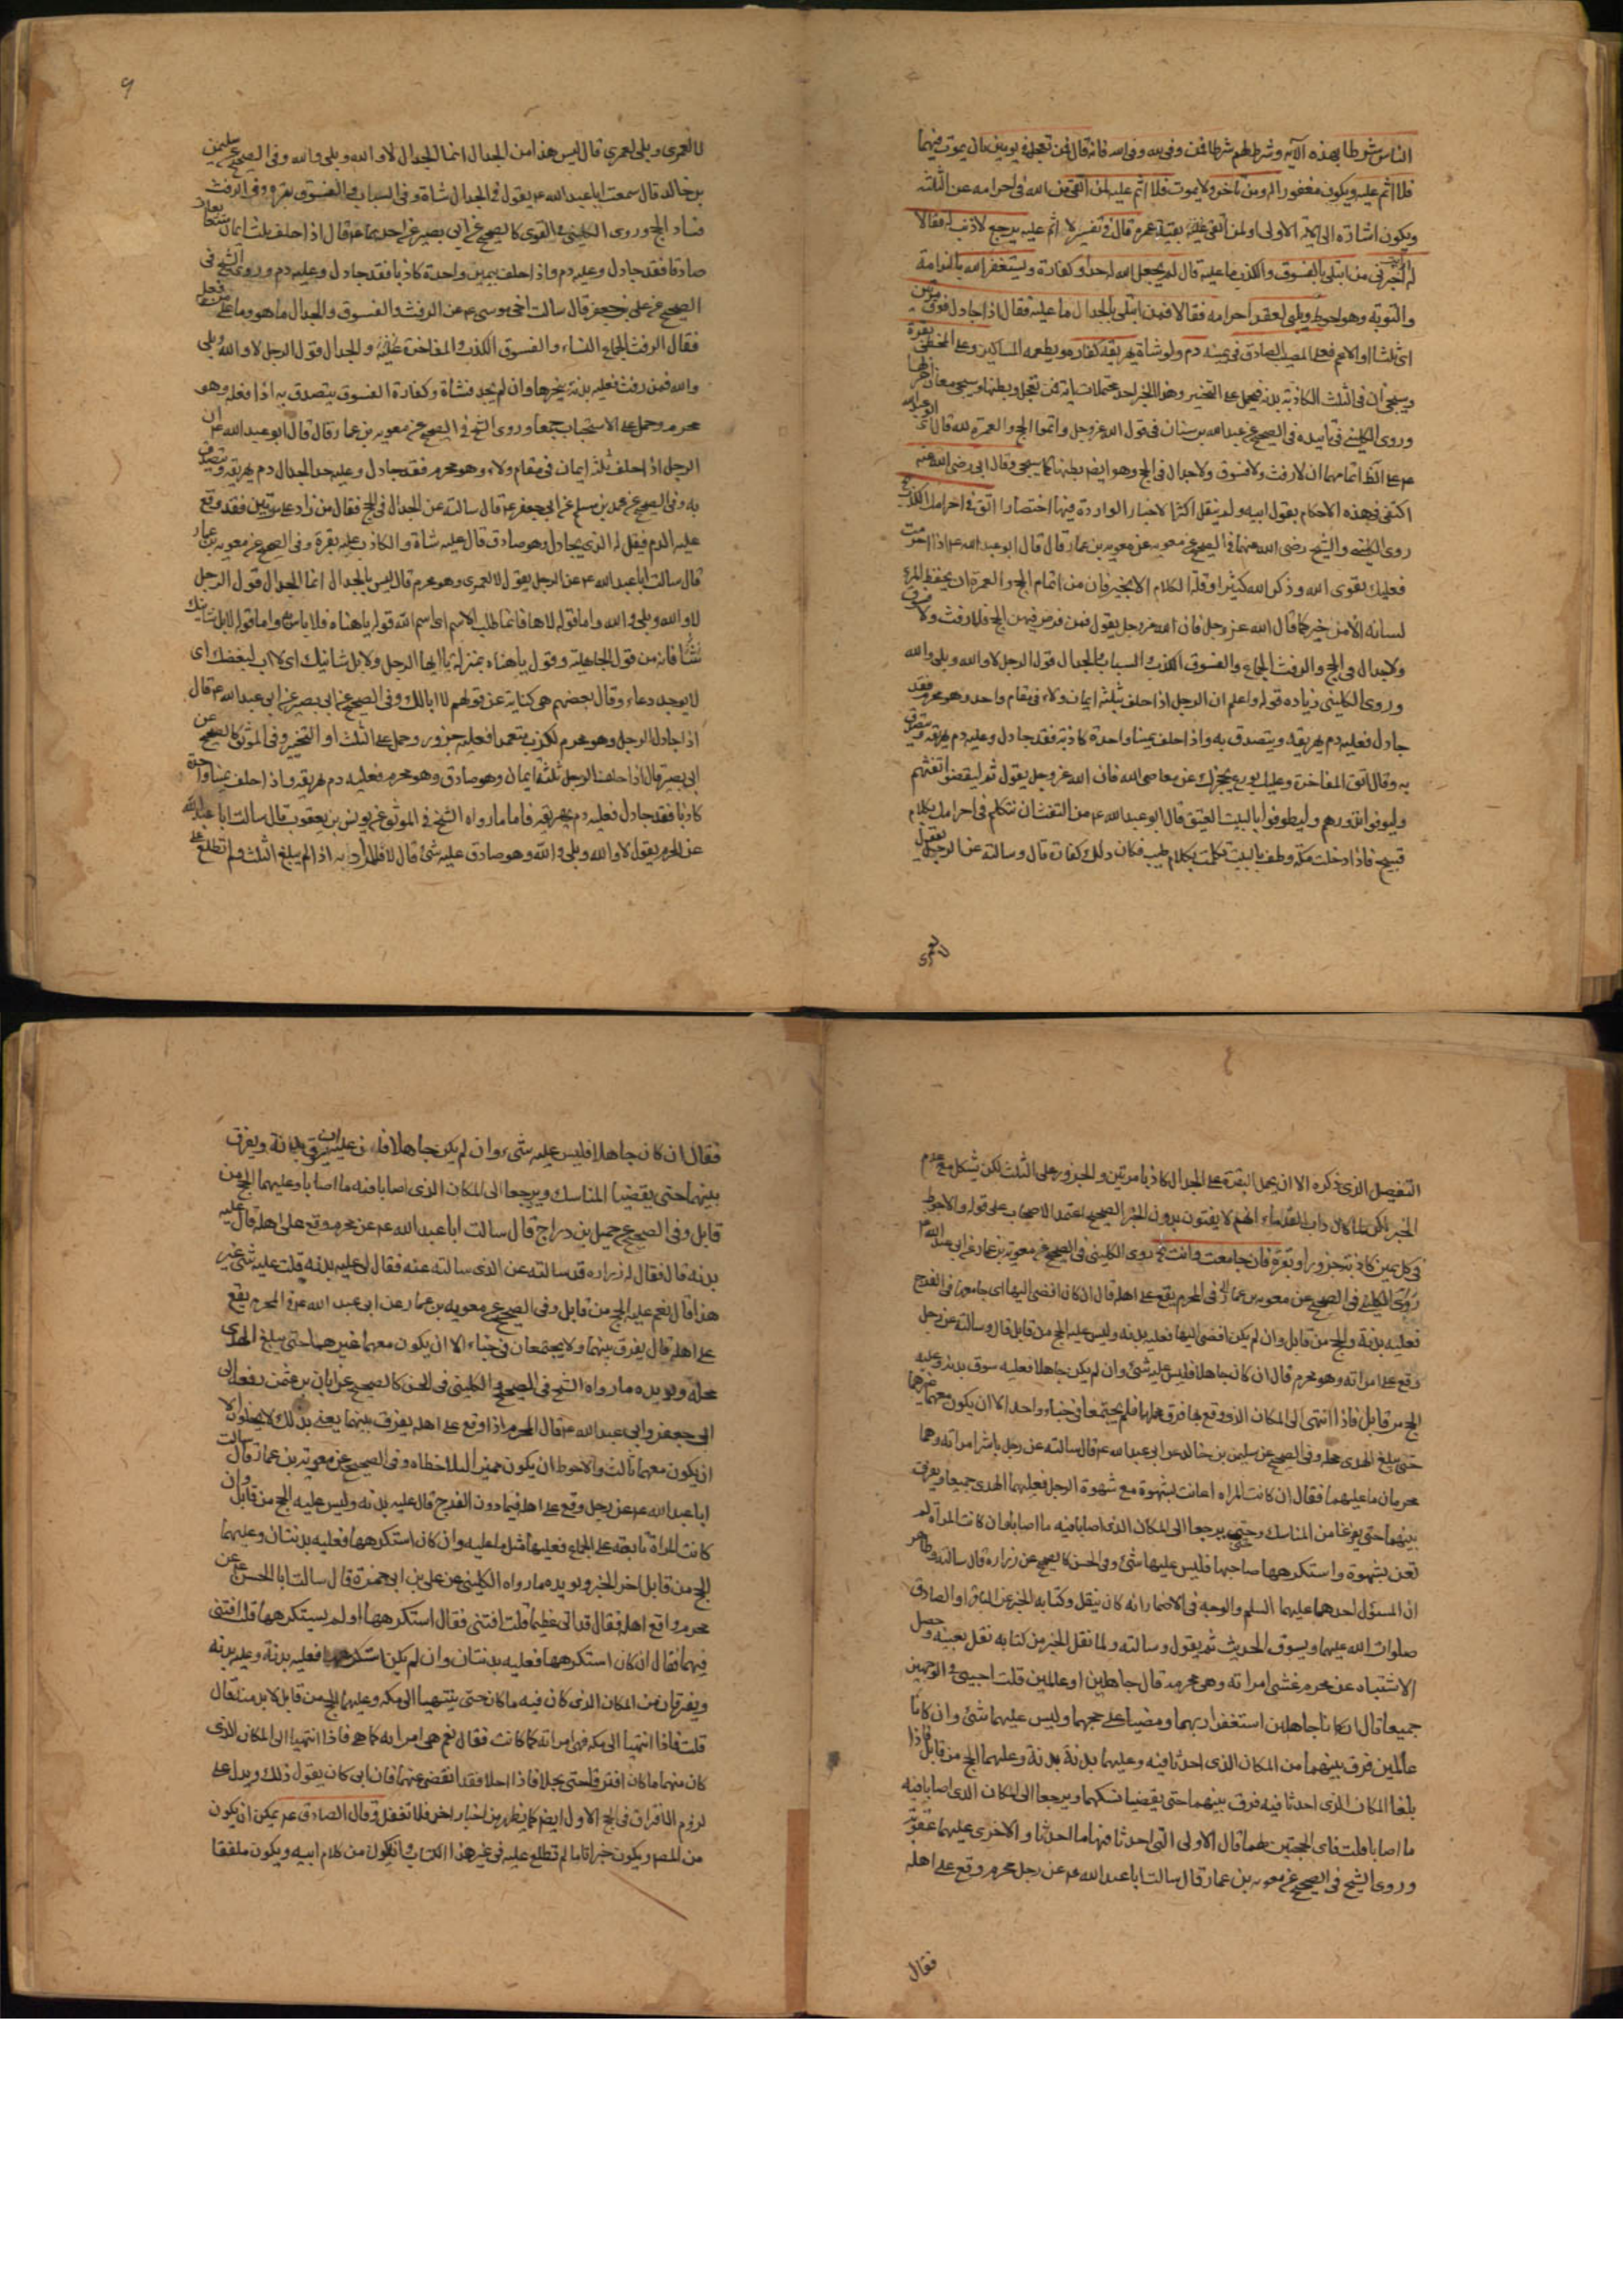 الناس شرطا بهذه الآية وشرط لهم شرطا فمن وفى لله وفى الله فانه قال فمن تعجل في يومين بان يموت فيهما
فلا اثم عليه ويكون مغفورا له ومن تأخر ولا يموت فلا اثم عليه لمن اتقى من الله في احرامه عن الثلثة
ويكون اشارة الى الآية الاولى او لمن اتقى بقية عمره قال في تفسير لا اثم عليه يرجع لا ذنب له فقالا
له اخبرني من ابتلى بالفسوق والكذب ما عليه قال لم يجعل الله له حدا وكفارة ويستغفر الله بالندامة
والتوبة وهو احوط ويلبي لعقد احرامه فقالا فمن ابتلى بالجدال ما عليه فقال اذا جادل فوق مرتين
اي ثلثا او الاعم فعلى المصيب الصادق في يمينه دم ولو شاة يهريقه كفارة ويطعمه المساكين وعلى المخطئ بقرة
وسيجئ ان في الثلث الكاذبة بدنة فيحمل على التخيير وهذا الخبر احد محتملات
وروى الكليني في تأييده في الصحيح عن عبد الله بن سنان في قول الله عز وجل واتموا الحج والعمرة لله قال ابو عبد الله
ع على انما تمامهما ان لا رفث ولا فسوق ولا جدال في الحج وهو ايضا بطن لها كما سيجئ وقال ابي رضى الله عنه
اكتفى في هذه الاحكام بقول ابيه ولم ينقل اكثر الاخبار الواردة فيها اختصارا اتق في احرامك الكذب
روى الكليني والشيخ رضى الله عنهما في الصحيح عن معوية بن عمار قال قال ابو عبد الله ع اذا احرمت
فعليك بتقوى الله وذكر الله كثيرا وقلة الكلام الا بخير فان من اتمام الحج والعمرة ان يحفظ المرء
لسانه الا من خير كما قال الله عز وجل فان الله عز وجل يقول فمن فرض فيهن الحج فلا رفث ولا فسوق
ولا جدال في الحج والرفث الجماع والفسوق الكذب والسباب والجدال قول الرجل لا والله وبلى والله
وروى الكليني زيادة قوله واعلم ان الرجل اذا حلف بثلثة ايمان ولاء في مقام واحد وهو محرم فقد
جادل فعليه دم يهريقه ويتصدق به واذا حلف يمينا واحدة كاذبة فقد جادل وعليه دم يهريقه ويتصدق
به وقال اتق المفاخرة وعليك بورع يحجزك عن معاصى الله فان الله عز وجل يقول ثم ليقضوا تفثهم
وليوفوا نذورهم وليطوفوا بالبيت العتيق قال ابو عبد الله ع من التفث ان تتكلم في احرامك بكلام
قبيح فاذا دخلت مكة وطفت بالبيت تكلمت بكلام طيب فكان ذلك كفارة قال وسالته عن الرجل يقول
لا لعمري
٩
لا لعمري وبلى لعمري قال ليس هذا من الجدال انما الجدال لا والله وبلى والله وفي الصحيح عن سليمن
بن خالد قال سمعت ابا عبد الله ع يقول في الجدال شاة وفي السباب والفسوق بقرة وفي الرفث
فساد الحج وروى الكليني في القوي كالصحيح عن ابي بصير عن احدهما ع قال اذا حلف بثلث ايمان متتابعات
صادقا فقد جادل وعليه دم واذا حلف بيمين واحدة كاذبا فقد جادل وعليه دم وروى الشيخ في
الصحيح عن علي بن جعفر قال سالت اخي موسى ع عن الرفث والفسوق والجدال ما هو وما على من فعله
فقال الرفث الجماع النساء والفسوق الكذب والمفاخرة والجدال قول الرجل لا والله وبلى
والله فمن رفث فعليه بدنة ينحرها وان لم يجد فشاة وكفارة الفسوق يتصدق به اذا فعله وهو
محرم وحمل على الاستحباب جمعا وروى الشيخ في الصحيح عن معوية بن عمار قال قال ابو عبد الله ع ان
الرجل اذا حلف ثلثة ايمان في مقام ولاء وهو محرم فقد جادل وعليه حد الجدال دم يهريقه ويتصدق
به وفي الصحيح عن محمد بن مسلم عن ابي جعفر ع قال سالته عن الجدال في الحج فقال من زاد على مرتين فقد وقع
عليه الدم فقيل له الذي يجادل وهو صادق قال عليه شاة والكاذب عليه بقرة وفي الصحيح عن معوية بن عمار
قال سالت ابا عبد الله ع عن الرجل يقول لا لعمري وهو محرم قال ليس بالجدال انما الجدال قول الرجل
لا والله وبلى والله واما قوله لاها فانما طلب الاسم اي اسم الله قوله ياهناه فلا باس به واما قوله لابل شانيك
فانه من قول الجاهلية وقول ياهناه بمنزلة يا ايها الرجل ولا بل شانيك اي لا اب لمبغضك اي
لا يوجد دعاء وقال بعضهم هي كناية عن قولهم لا ابا لك وفي الصحيح عن ابي بصير عن ابي عبد الله ع قال
اذا جادل الرجل وهو محرم فكذب متعمدا فعليه جزور وحمل على الثلث او التخيير وفي الموثق كالصحيح عن
ابي بصير قال اذا حلف الرجل ثلثة ايمان وهو صادق وهو محرم فعليه دم يهريقه واذا حلف يمينا واحدة
كاذبا فقد جادل فعليه دم يهريقه فاما ما رواه الشيخ في الموثق عن يونس بن يعقوب قال سالت ابا عبد الله
عن المحرم يقول لا والله وبلى والله وهو صادق عليه شئ قال لا فالمراد به اذا لم يبلغ الثلث ولم نطلع على
التفصيل الذي ذكره الا ان يحمل البقرة على الجدال كاذبا مرتين والجزور على الثلث لكن يشكل مع عدم
الخبر لكن لما كان داب القدماء انهم لا يفتون بدون الخبر الصحيح اعتمد الاصحاب على قوله والاحوط
في كل يمين كاذبة جزور او بقرة فان جامعت وانت روى الكليني في الصحيح عن معوية بن عمار عن ابي عبد الله ع
روى الكليني في الصحيح عن معوية بن عمار في المحرم يقع على اهله قال ان كان افضى اليها اى جامعها في الفرج
فعليه بدنة والحج من قابل وان لم يكن افضى اليها فعليه بدنة وليس عليه الحج من قابل قال وسالته عن رجل
وقع على امراته وهو محرم قال ان كان جاهلا فليس عليه شئ وان لم يكن جاهلا فعليه سوق بدنة وعليه
الحج من قابل فاذا انتهى الى المكان الذي وقع بها فرق محملاهما فلم يجتمعا في خباء واحد الا ان يكون معهما غيرهما
حتى يبلغ الهدى محله وفي الصحيح عن سليمن بن خالد عن ابي عبد الله ع قال سالته عن رجل باشر امراته وهما
محرمان ما عليهما فقال ان كانت المراة اعانت بشهوة مع شهوة الرجل فعليهما الهدى جميعا ويفرق
بينهما حتى يفرغا من المناسك وحتى يرجعا الى المكان الذي اصابا فيه ما اصابا وان كانت المراة لم
تعن بشهوة واستكرهها صاحبها فليس عليها شئ وفي الحسن كالصحيح عن زرارة قال سالته وظاهر
ان المسئول احدهما عليهما السلم والوجه في الاضمار انه كان ينقل وكتابه الخبر عن الباقر او الصادق
صلوات الله عليهما ويسوق الحديث ثم يقول وسالته ولما نقل الخبر من كتابه نقل بعينه وحصل
الاشتباه عن محرم غشى امراته وهى محرمة قال جاهلين او عالمين قلت اجبني في الوجهين
جميعا قال ان كانا جاهلين استغفرا ربهما ومضيا على حجهما وليس عليهما شئ وان كانا
عالمين فرق بينهما من المكان الذي احدثا فيه وعليهما بدنة بدنة وعليهما الحج من قابل فاذا
بلغا المكان الذي احدثا فيه فرق بينهما حتى يقضيا نسكهما ويرجعا الى المكان الذي اصابا فيه
ما اصابا قلت فاى الحجتين لهما قال الاولى التي احدثا فيها ما احدثا والاخرى عليهما عقوبة
وروى الشيخ في الصحيح عن معوية بن عمار قال سالت ابا عبد الله ع عن رجل محرم وقع على اهله
فقال
فقال ان كان جاهلا فليس عليه شئ وان لم يكن جاهلا فان عليه ان يسوق بدنة ويفرق
بينهما حتى يقضيا المناسك ويرجعا الى المكان الذي اصابا فيه ما اصابا وعليهما الحج من
قابل وفي الصحيح عن جميل بن دراج قال سالت ابا عبد الله ع عن محرم وقع على اهله قال عليه
بدنة قال فقال له زرارة قد سالته عن الذي سالته عنه فقال لي عليه بدنة قلت عليه شئ غير
هذا قال نعم عليه الحج من قابل وفي الصحيح عن معوية بن عمار عن ابي عبد الله ع في المحرم يقع
على اهله قال يفرق بينهما ولا يجتمعان في خباء الا ان يكون معهما غيرهما حتى يبلغ الهدى
محله ويؤيده ما رواه الشيخ في الصحيح والكليني في الحسن كالصحيح عن ابان بن عثمن رفعه الى
ابي جعفر وابي عبد الله ع قال المحرم اذا وقع على اهله يفرق بينهما يعني بذلك لا يخلوان الا
ان يكون معهما ثالث والاحوط ان يكون مميزا لملاحظاه وفي الصحيح عن معوية بن عمار قال سالت
ابا عبد الله ع عن رجل وقع على اهله فيما دون الفرج قال عليه بدنة وليس عليه الحج من قابل وان
كانت المراة تابعته على الجماع فعليها مثل ما عليه وان كان استكرهها فعليه بدنتان وعليهما
الحج من قابل اخر الخبر ويؤيده ما رواه الكليني عن علي بن ابي حمزة قال سالت ابا الحسن ع عن
محرم واقع اهله فقال قد اتى عظيما قلت افتنى فقال استكرهها او لم يستكرهها قلت افتنى
فيهما فقال ان كان استكرهها فعليه بدنتان وان لم يكن استكرهها فعليه بدنة وعليها بدنة
ويفترقان من المكان الذي كان فيه ما كان حتى ينتهيا الى مكة وعليهما الحج من قابل لا بد منه قال
قلت فاذا انتهيا الى مكة فهى امراته كما كانت فقال نعم هى امراته كما هى فاذا انتهيا الى المكان الذي
كان منهما ما كان افترقا حتى يحلا فاذا احلا فقد انقضى عنهما فان ابي كان يقول ذلك ويدل على
لزوم الافتراق في الحج الاول ايضا كما يظهر من اخبار اخر فلا تغفل وقال الصادق ع يمكن ان يكون
من المصنف ويكون خبرا تاما لم نطلع عليه في غير هذا الكتاب وان يكون من كلام ابيه ويكون ملفقا